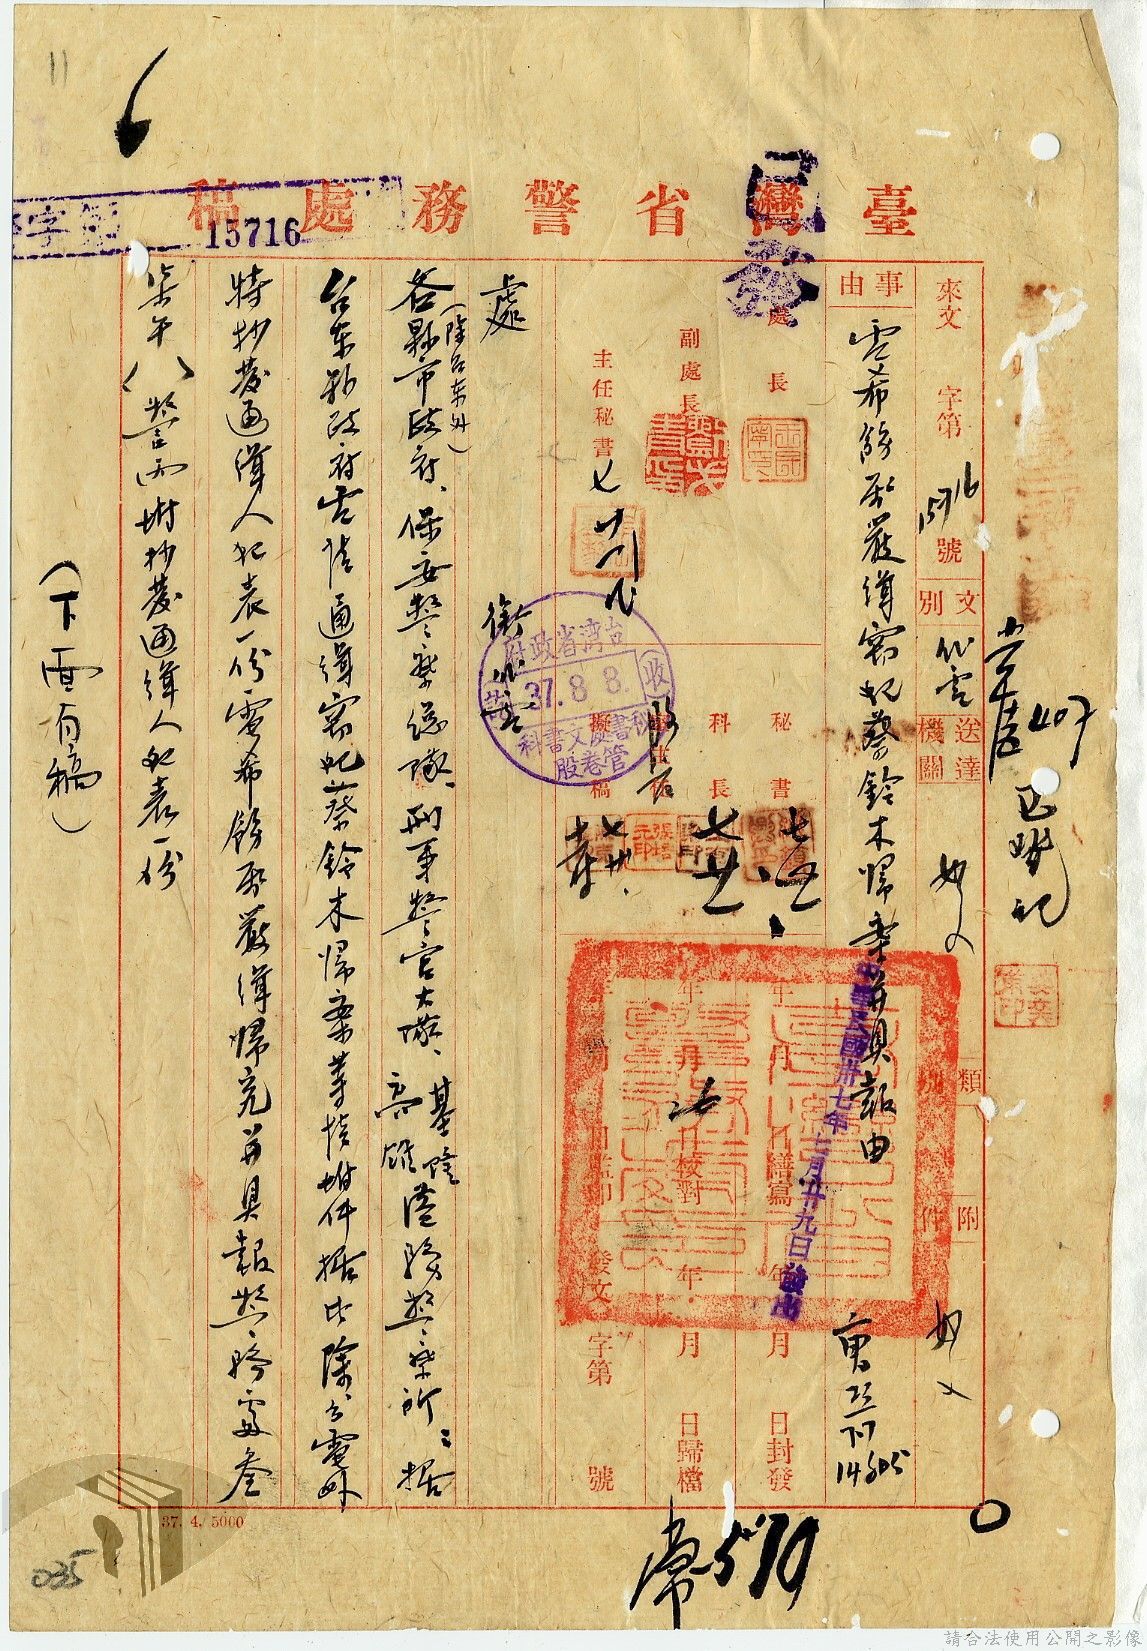 臺灣省警務處稿
已發
15716
來文 字第 15716 號
文別 代電
送達機關 如文
類別
附件 如文
事由
電希飭屬嚴緝竊犯蔡鈴木歸案并具報由
處長
副處長
主任秘書
秘書
科長
擬稿
台灣省政府
收
37.8.8.
秘書處文書科
管卷股
年 月 日繕寫
年 月 日校對
年 月 日監印
年 月 日封發
年 月 日歸檔
發文 字第 號
中華民國卅七年七月廿九日發出
衔代電
處
各縣市政府、(除台東外)保安警察總隊、刑事警官大隊、基隆高雄港務警察所:據
台東縣政府電請通緝竊犯蔡鈴木歸案等情附件據此除分電外
特抄發通緝人犯表一份電希飭屬嚴緝歸究並具報警務處叁
柒午(八)警丙附抄發通緝人犯表一份
(下面有稿)
407
已登記
14505
常570
37. 4. 5000
035
11
請合法使用公開之影像